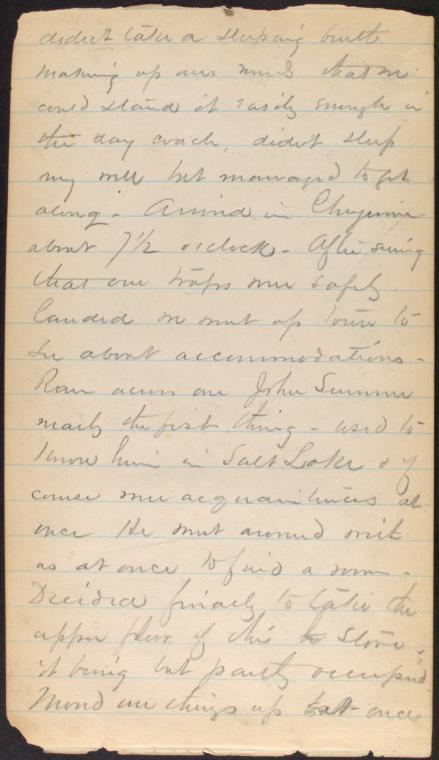 didn't take a sleeping berth
making up our minds that we
could stand it easily enough in
the day coach, didn't sleep
any well but managed to get
along - Arrived in Cheyenne
about 7 1/2 o'clock - After seeing
that our traps were safely
landed we went up town to
see about accommodations -
Ran across one John Sumner
nearly the first thing - used to
know him in Salt Lake & of
course were acquaintances at
once He went around with
us at once to find a room -
Decided finally to take the
upper floor of this Store,
it being but partly occupied
Moved our things up at once